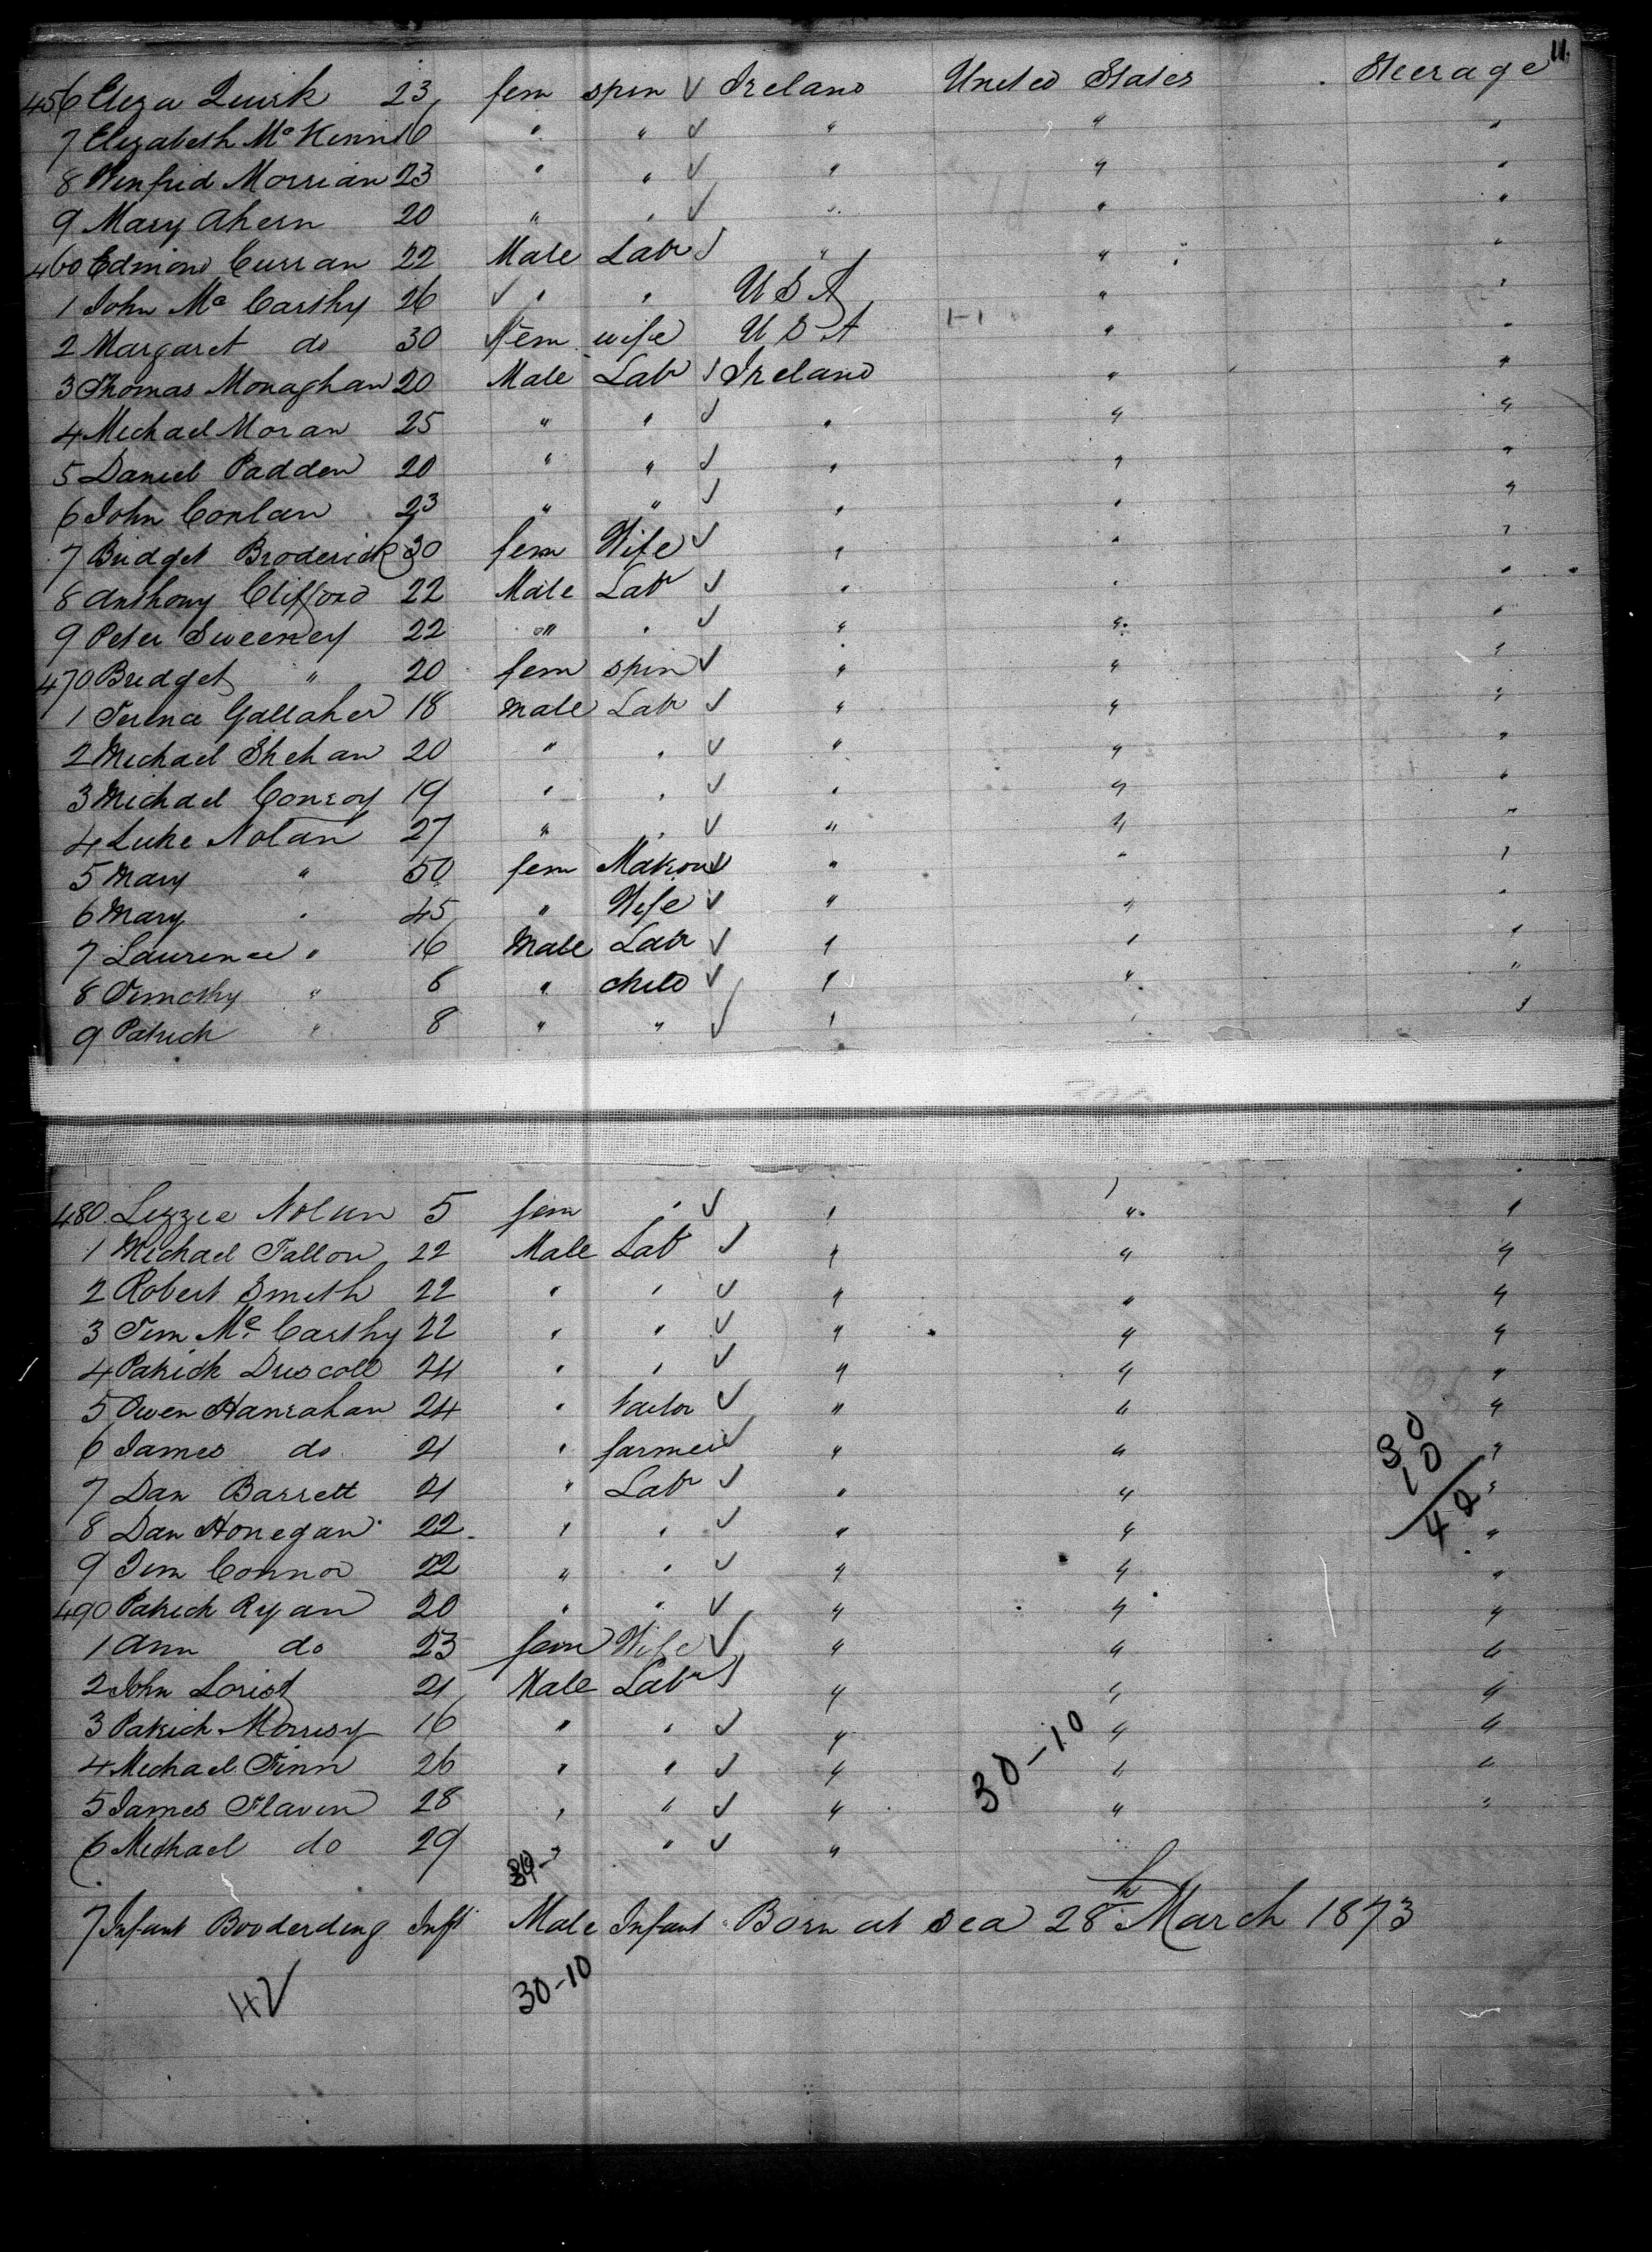 11.
456 Eliza Quirk 23 fem spin ✓ Ireland United States Steerage
7 Elizabeth McKenn 16 " " ✓ " " "
8 Winfrid Morrian 23 " " ✓ " " "
9 Mary Ahern 20 " " ✓ " " "
460 Edmond Curran 22 Male Labr ✓ " " "
1 John McCarthy 26 ✓ " " U S A " "
2 Margaret do 30 ✓ fem wife U S A 1-1 " "
3 Thomas Monaghan 20 Male Labr ✓ Ireland " "
4 Michael Moran 25 " " ✓ " " "
5 Daniel Padden 20 " " ✓ " " "
6 John Conlan 23 " " ✓ " " "
7 Bridget Broderick 30 fem Wife ✓ " " "
8 Anthony Clifford 22 Male Labr ✓ " " "
9 Peter Sweeney 22 " " ✓ " " "
470 Bridget " 20 fem spin ✓ " " "
1 Terence Gallaher 18 Male Labr ✓ " " "
2 Michael Shehan 20 " " ✓ " " "
3 Michael Conroy 19 " " ✓ " " "
4 Luke Nolan 27 " " ✓ " " "
5 Mary " 50 fem Matron ✓ " " "
6 Mary " 45 " Wife ✓ " " "
7 Laurence " 16 Male Labr ✓ " " "
8 Timothy " 8 " child ✓ " " "
9 Patrick " 8 " " ✓ " " "
480 Lizzie Nolan 5 fem " ✓ " " "
1 Michael Fallon 22 Male Labr ✓ " " "
2 Robert Smith 22 " " ✓ " " "
3 Tim McCarthy 22 " " ✓ " " "
4 Patrick Driscoll 24 " " ✓ " " "
5 Owen Hanrahan 24 " tailor ✓ " " "
6 James do 21 " farmer ✓ " " "
7 Dan Barrett 21 " Labr ✓ " " "
8 Dan Honegan 22 " " ✓ " " "
9 Jim Connor 22 " " ✓ " " "
30
10
40
490 Patrick Ryan 20 " " ✓ " " "
1 Ann do 23 fem Wife ✓ " " "
2 John Lorist 21 Male Labr ✓ " " "
3 Patrick Morrisy 16 " " ✓ " " "
4 Michael Finn 26 " " ✓ " " "
5 James Flavin 28 " " ✓ " " "
30-10
6 Michael do 29 " " ✓ "
7 Infant Booderding Inft Male Infant Born at sea 28th March 1873
42
30-10